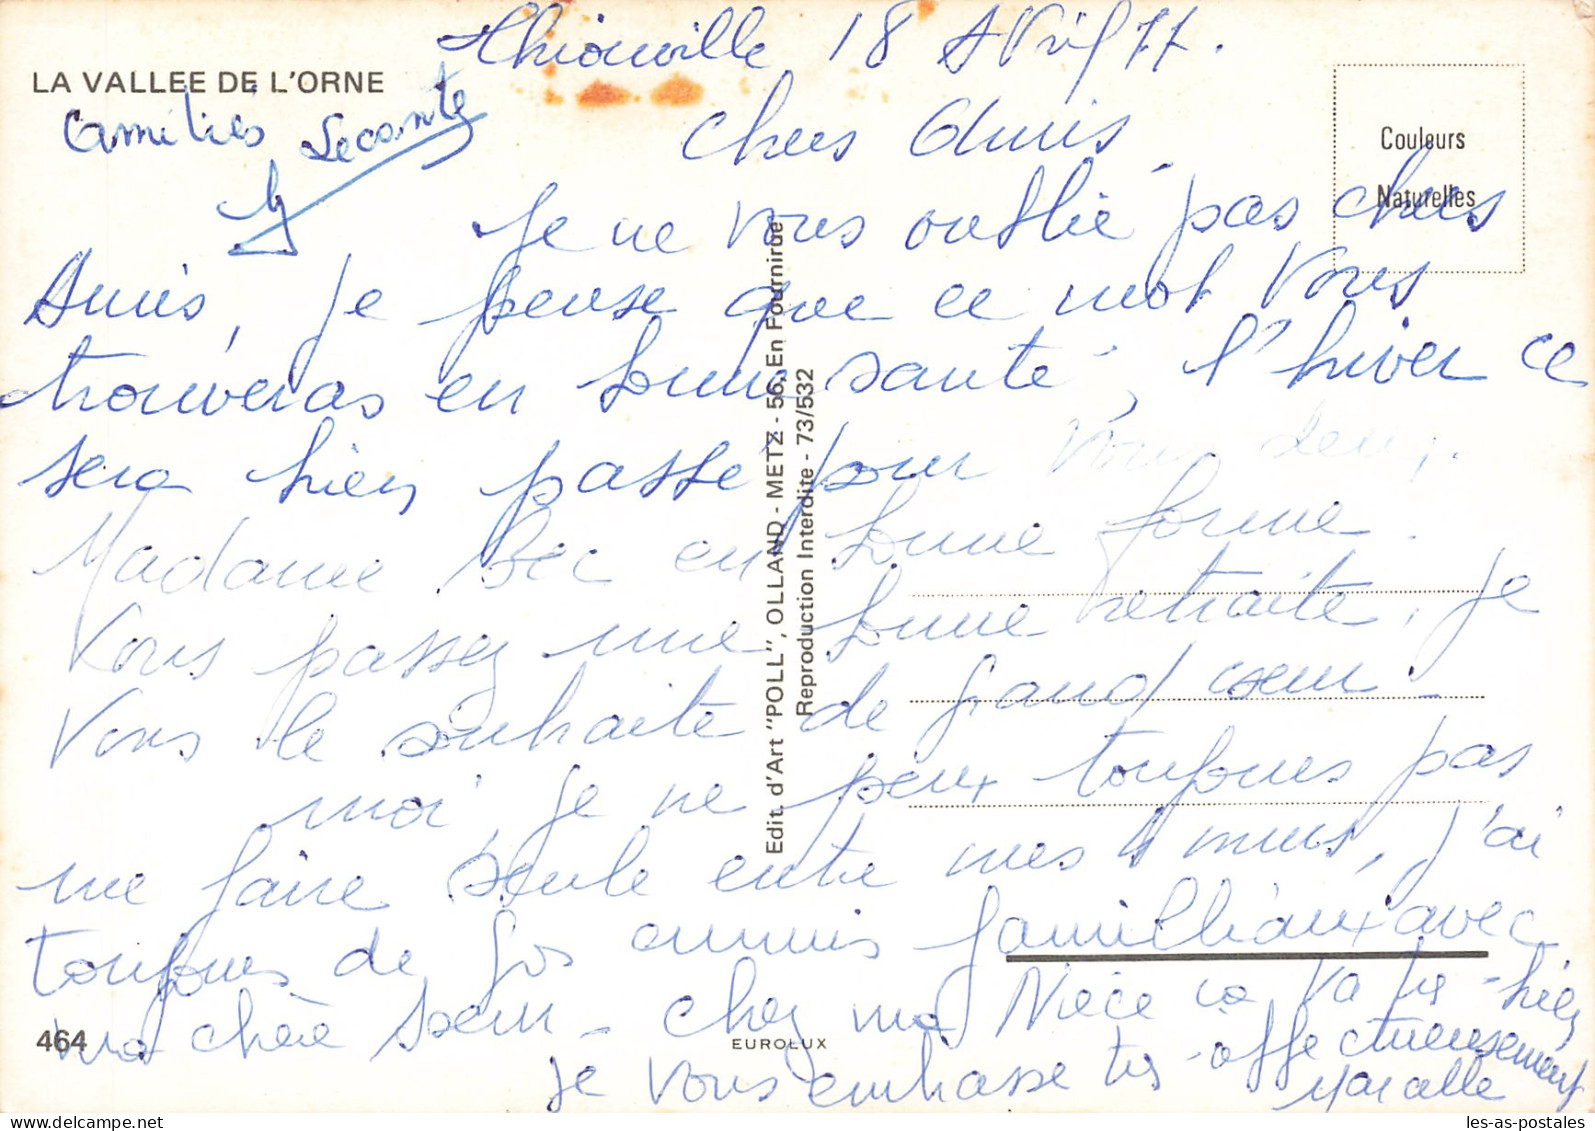 Thionville 18 Avril 77.
LA VALLEE DE L'ORNE
amitiés Lecomte
Chers Amis
Couleurs
Naturelles
Je ne vous oublie pas chers
Amis, je pense que ce mot vous
trouveras en bonne santé, l'hiver ce
sera bien passé pour vous deux.
Madame Bec en bonne forme.
Vous passez une bonne retraite, je
vous le souhaite de grand cœur -
moi, je ne peux toujours pas
me faire seule entre mes 4 murs, j'ai
toujours de gos ennuis familliaux avec
ma chère sœur - chez ma Nièce ca va trs - bien
je vous embrasse trs - affectueusement
Marcelle
464
EUROLUX
Edit. d'Art "POLL", OLLAND - METZ - 56, En Fournirue
Reproduction Interdite - 73/532
les-as-postales.com